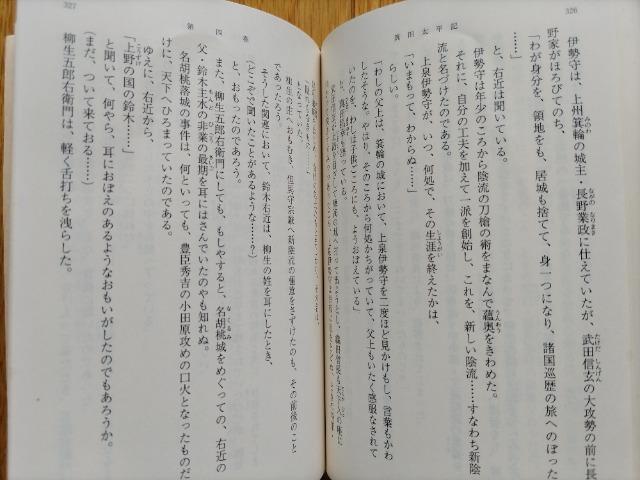 326
眞田太平記
伊勢守は、上州箕輪の城主・長野業政に仕えていたが、武田信玄の大攻勢の前に長
野家がほろびてのち、
「わが身分を、領地をも、居城も捨てて、身一つになり、諸国巡歴の旅へのぼった
……」
と、右近は聞いている。
伊勢守は年少のころから陰流の刀槍の術をまなんで蘊奥をきわめた。
それに、自分の工夫を加えて一派を創始し、これを、新しい陰流……すなわち新陰
流と名づけたのである。
上泉伊勢守が、いつ、何処で、その生涯を終えたかは、
「いまもって、わからぬ……」
らしい。
「わしの父上は、箕輪の城において、上泉伊勢守を二度ほど見かけもし、言葉もかわ
したそうな。やはり、そのころから何処かちがっていて、父上もいたく感服なされて
いたのを、わしは子供ごころにも、ようおぼえている」
327
第四巻
柳生の庄へおもむき、但馬守宗厳へ新陰流の極意をさずけたのも、その前後のこと
であったろう。
そうした関連において、鈴木右近は、柳生の姓を耳にしたとき、
(どこぞで聞いたことがあるような……?)
と、おもったのであろう。
また、柳生五郎右衛門にしても、もしやすると、名胡桃城をめぐっての、右近の
父・鈴木主水の非業の最期を耳にはさんでいたのやも知れぬ。
名胡桃落城の事件は、何といっても、豊臣秀吉の小田原攻めの口火となったものだ
けに、天下へひろまっていたのである。
ゆえに、右近から、
「上野の国の鈴木……」
と聞いて、何やら、耳におぼえのあるようなおもいがしたのでもあろうか。
(まだ、ついて来ておる……)
柳生五郎右衛門は、軽く舌打ちを洩らした。